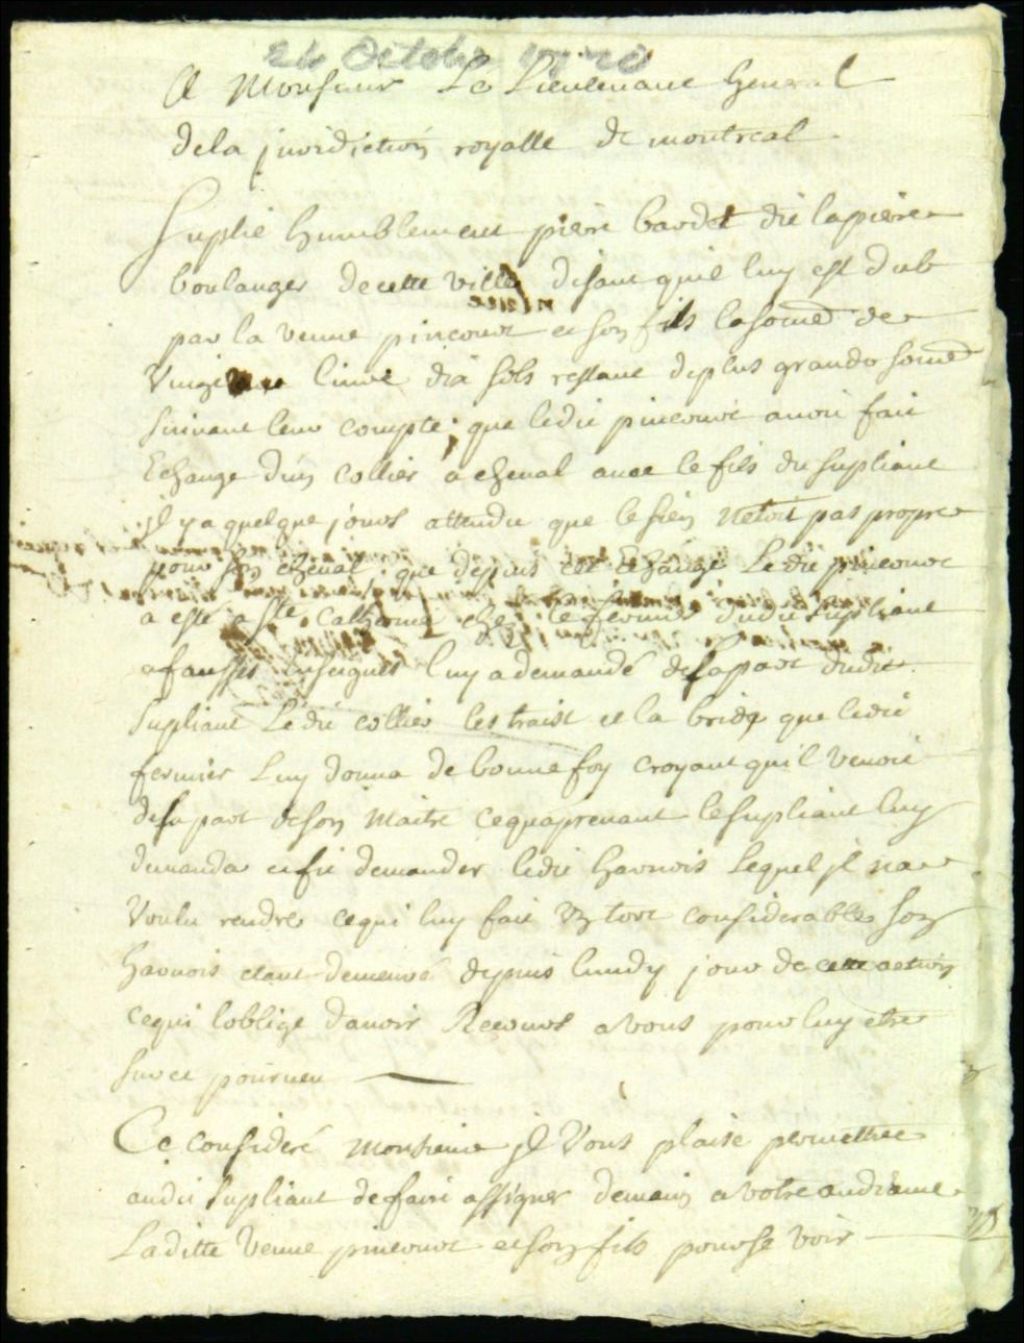 24 Octobre
A Monsieur Le Lieutenant General
dela juridiction royalle de montreal
Suplie humblement pierre bardet dit lapierre
boulanger decette ville disant quil luy est dub
par la veuve pincourt et son fils lasome de
Vingt livre dix sols restant deplus grande some
suivant leur compte; que ledit pincourt auroit fait
Echange d'un collier a cheval avec le fils du supliant
il y a quelque jours attendu que le sien netoit pas propre
pour son cheval, que depuis cet Echange Ledit pincourt
a esté a Ste. Catherine chez le fermier dudit supliant
a fausses enseignes luy a demandé desapart dudit
supliant Ledit collier les traist et la bride que ledit
fermier Luy donna de bonne foy croyant quil venoit
desapart deson Maitre cequaprenant lesupliant luy
demanda et fit demander ledit harnois Lequel il na
voulu rendre cequi luy fait un tort considerable son
harnois etant demeuré depuis lundy jour de cette action
cequi loblige davoir Recours a vous pour luy etre
surce pourveu
Ce consideré Monsieur Il Vous plaise permettre
audit supliant defaire assigner demain a votre audiance
Laditte Veuve pincourt et son fils pour se voir